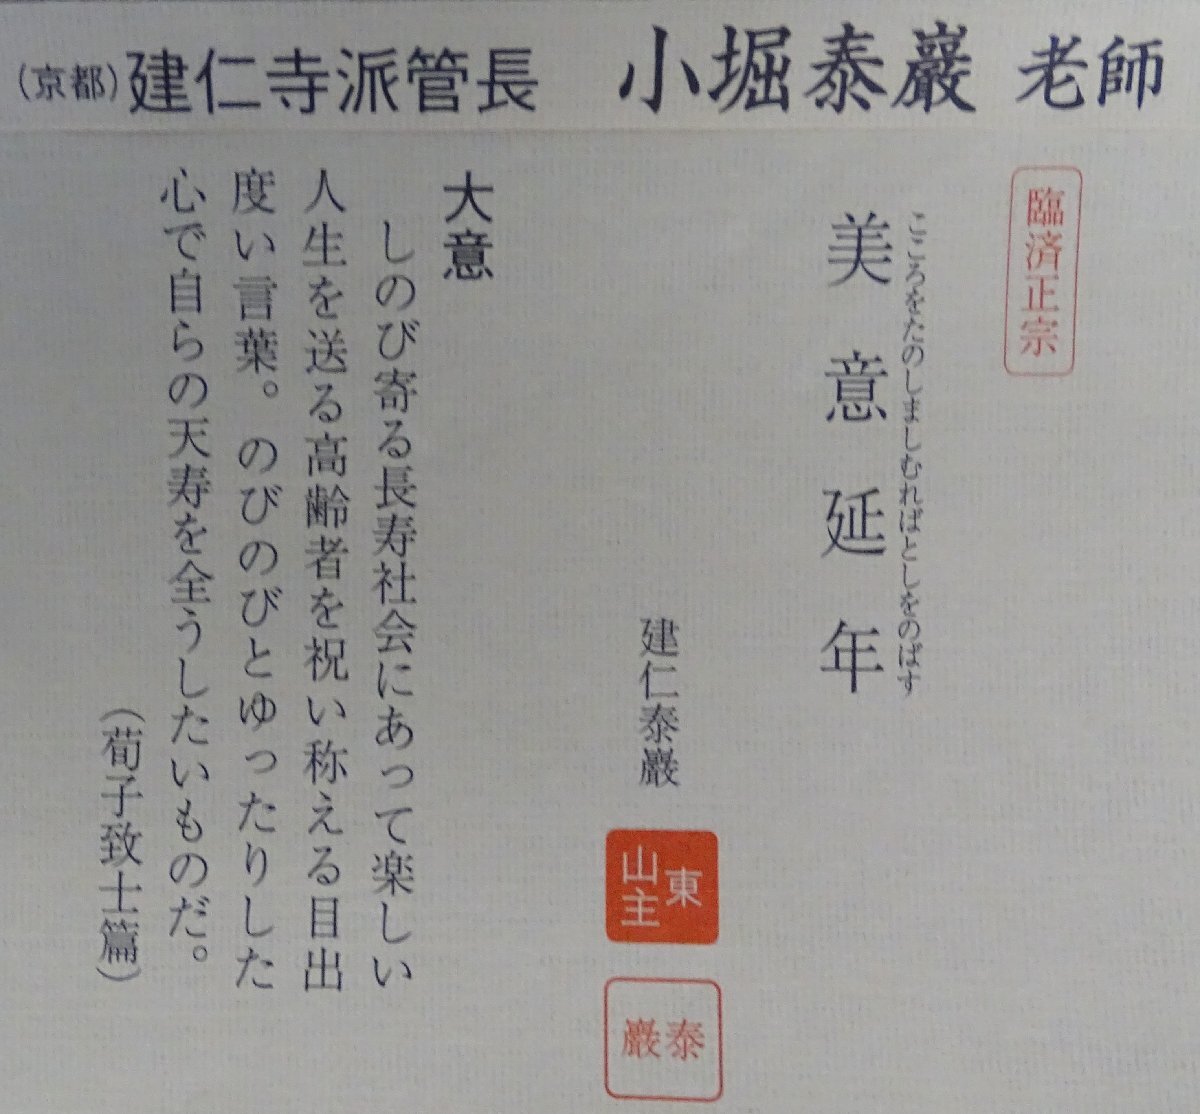 (京都)建仁寺派管長 小堀泰巖 老師
臨済正宗
こころをたのしましむればとしをのばす
美意延年
建仁泰巖
東
山主
泰
巖
大意
しのび寄る長寿社会にあって楽しい
人生を送る高齢者を祝い称える目出
度い言葉。のびのびとゆったりした
心で自らの天寿を全うしたいものだ。
(荀子致士篇)